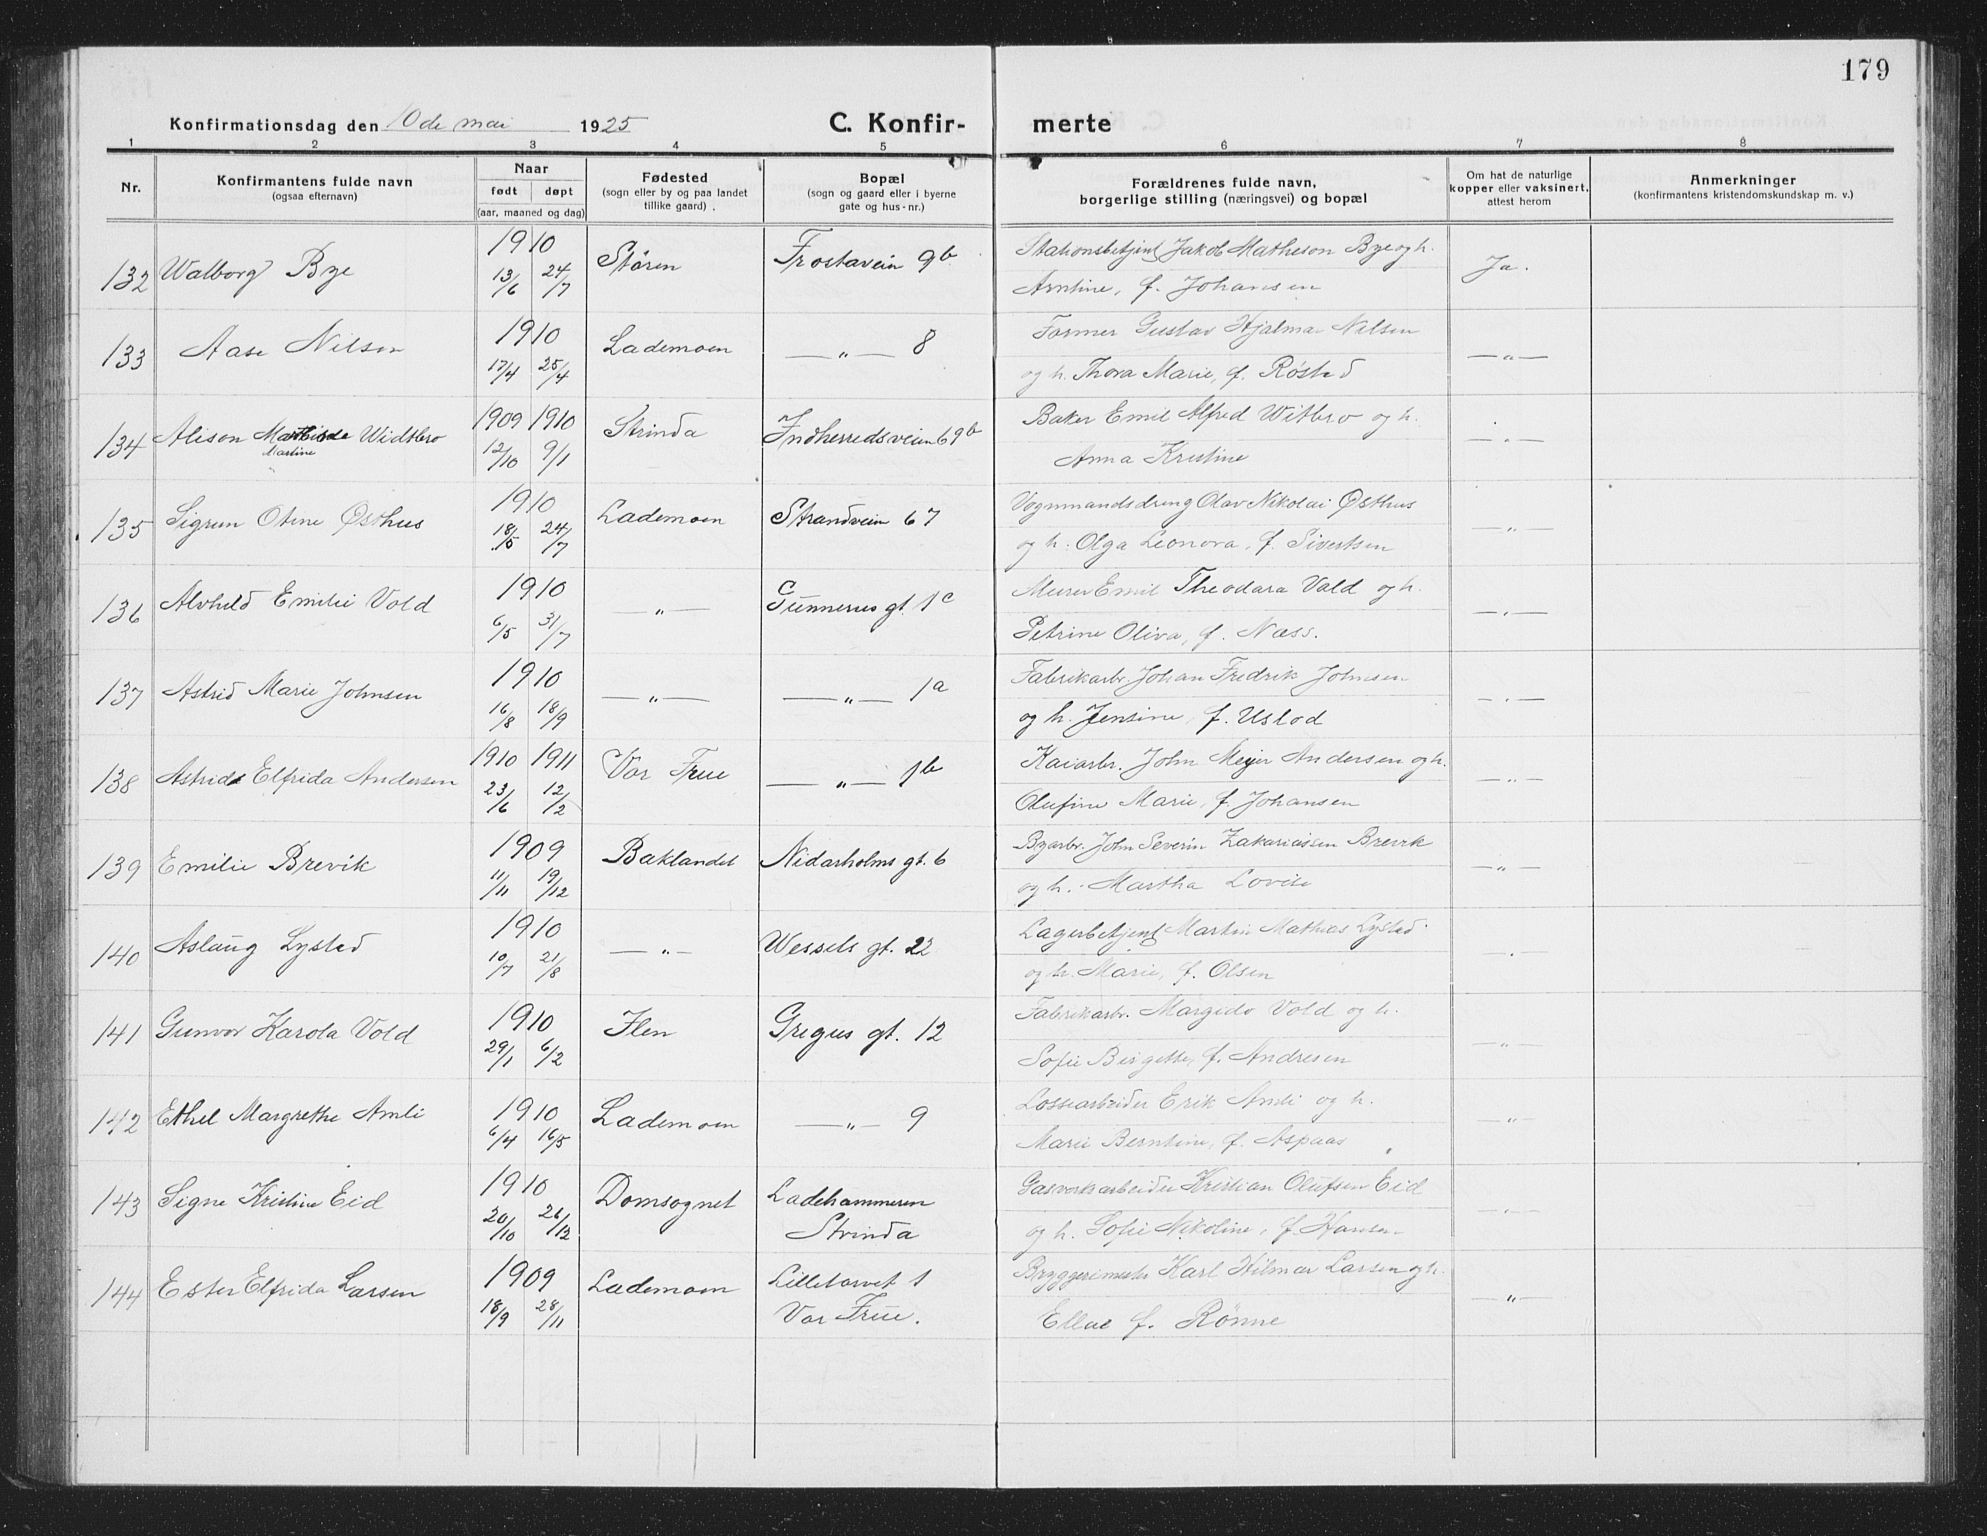 179
Konfirmationsdag den 10de mai 1925 C. Konfir- merte
1 2 3 4 5 6 7 8
Nr.
Konfirmantens fulde navn
(ogsaa efternavn)
Naar
født døpt
(aar, maaned og dag)
Fødested
(sogn eller by og paa landet
tillike gaard).
Bopæl
(sogn og gaard eller i byerne
gate og hus-nr.)
Forældrenes fulde navn,
borgerlige stilling (næringsvei) og bopæl
Om hat de naturlige
kopper eller vaksinert,
attest herom
Anmerkninger
(konfirmantens kristendomskundskap m. v.)
132 Walborg Bye 1910 13/6 24/7 Støren Frostavein 9b Stationsbetjent Jakob Matheson Bye og h.
Arntine, f. Johansen Ja.
133 Aase Nilsen 1910 17/4 25/4 Lademoen —"— 8 Former Gustav Hjalmar Nilsen
og h. Thora Marie, f. Røstad —"—
134 Alison Widtbro 1909 1910 12/10 9/1 Strinda Indherredsveien 69b Baker Emil Alfred Witbro og h.
Martine
Anna Kristine —"—
135 Sigrun Otine Østhus 1910 18/5 24/7 Lademoen Strandvein 67 Vognmandsdreng Olav Nikolai Østhus
og h. Olga Leonora, f. Sivertsen —"—
136 Alvhild Emilie Vold 1910 6/5 31/7 —"— Gunnerus gt. 1c Murer Emil Theodara Vald og h.
Petrine Oliva, f. Næss. —"—
137 Astrid Marie Johnsen 1910 16/8 18/9 —"— —"— 1a Fabrikarb. Johan Fredrik Johnsen
og h. Jensine, f. Uslod —"—
138 Astrid Elfrida Andersen 1910 1911 23/6 12/2 Vor Frue —"— 1b Kaiarb. John Meyer Andersen og h.
Olufine Marie, f. Johansen —"—
139 Emilie Brevik 1909 11/11 19/12 Baklandet Nidarholms gt. 6 Byarb. John Severin Zakariassen Brevik
og h. Martha Lovise —"—
140 Aslaug Lysted 1910 10/7 21/8 —"— Wessels gt. 22 Lagerbetjent Martin Mathias Lysted
og h. Marie, f. Olsen —"—
141 Gunvor Karola Vold 1910 29/1 6/2 Ilen Gregus gt. 12 Fabrikarb. Margido Vold og h.
Sofie Birgette, f. Andresen —"—
142 Ethel Margrethe Amli 1910 6/4 16/5 Lademoen —"— 9 Lossearbeider Erik Amli og h.
Marie Berntine, f. Aspaas —"—
143 Signe Kristine Eid 1910 20/10 26/12 Domsognet Ladehammeren
Strinda Gasverksarbeider Kristian Olufsen Eid
og h. Sofie Nikoline, f. Hansen —"—
144 Ester Elfrida Larsen 1909 18/9 28/11 Lademoen Lilletorvet 1
Vor Frue. Bryggerimester Karl Hilmar Larsen og h.
Ellae f. Rönne —"—